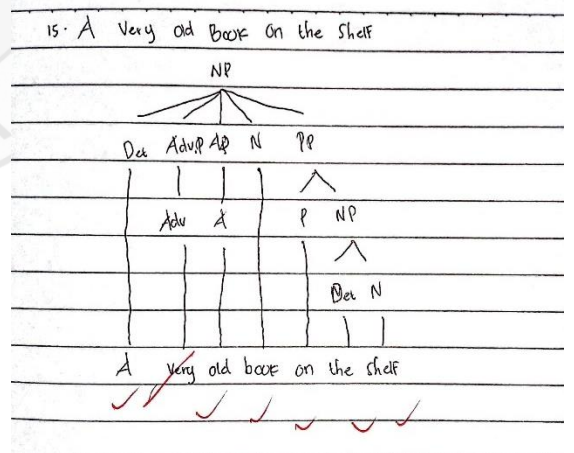 15. A Very old Book on the Shelf
NP
Det Adv.P AP N PP
Adv A P NP
Det N
A very old book on the shelf